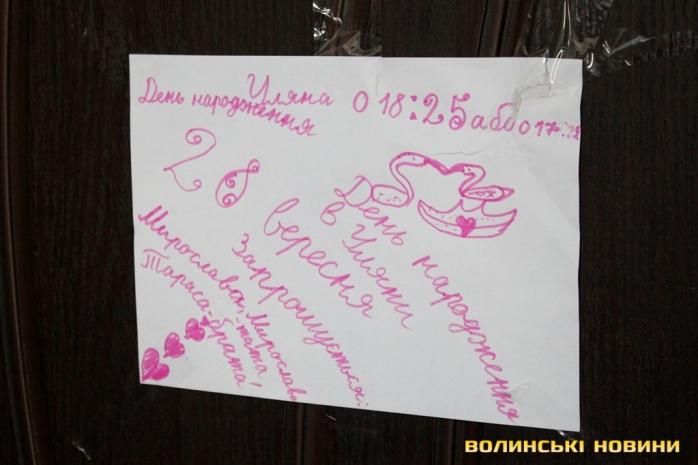 День народження Уляна о 18:25 або о 17:22
28 вересня
День народження
в Уляни
Запрошується:
Мирослава, Мирослава
Тараса-брата! -тата!
ВОЛИНСЬКІ НОВИНИ